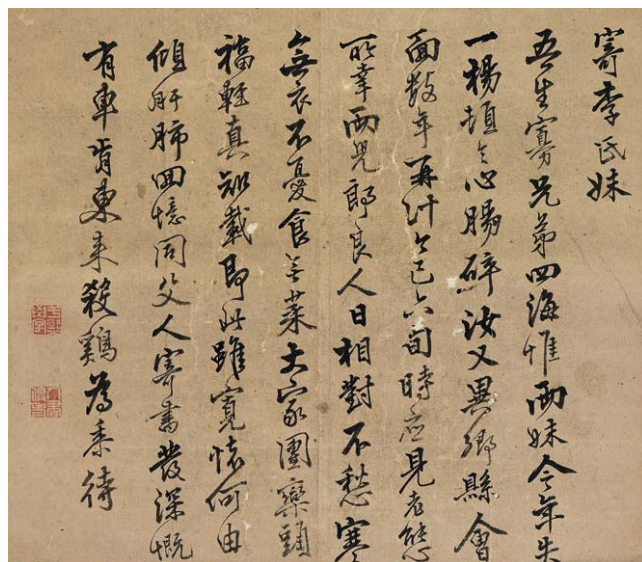 寄李氏妹
吾生寡兄弟四海惟兩妹今年失
一楊頓令心腸碎汝又異鄉縣會
面数年再計今已六旬時應見老態
所幸兩兒郎良人日相對不愁寒
無衣不憂食無菜大家團欒頭
福輕真知載即此雖寬懷何由
傾肝肺回憶同父人寄書發深慨
有車肯東來殺鷄為黍待